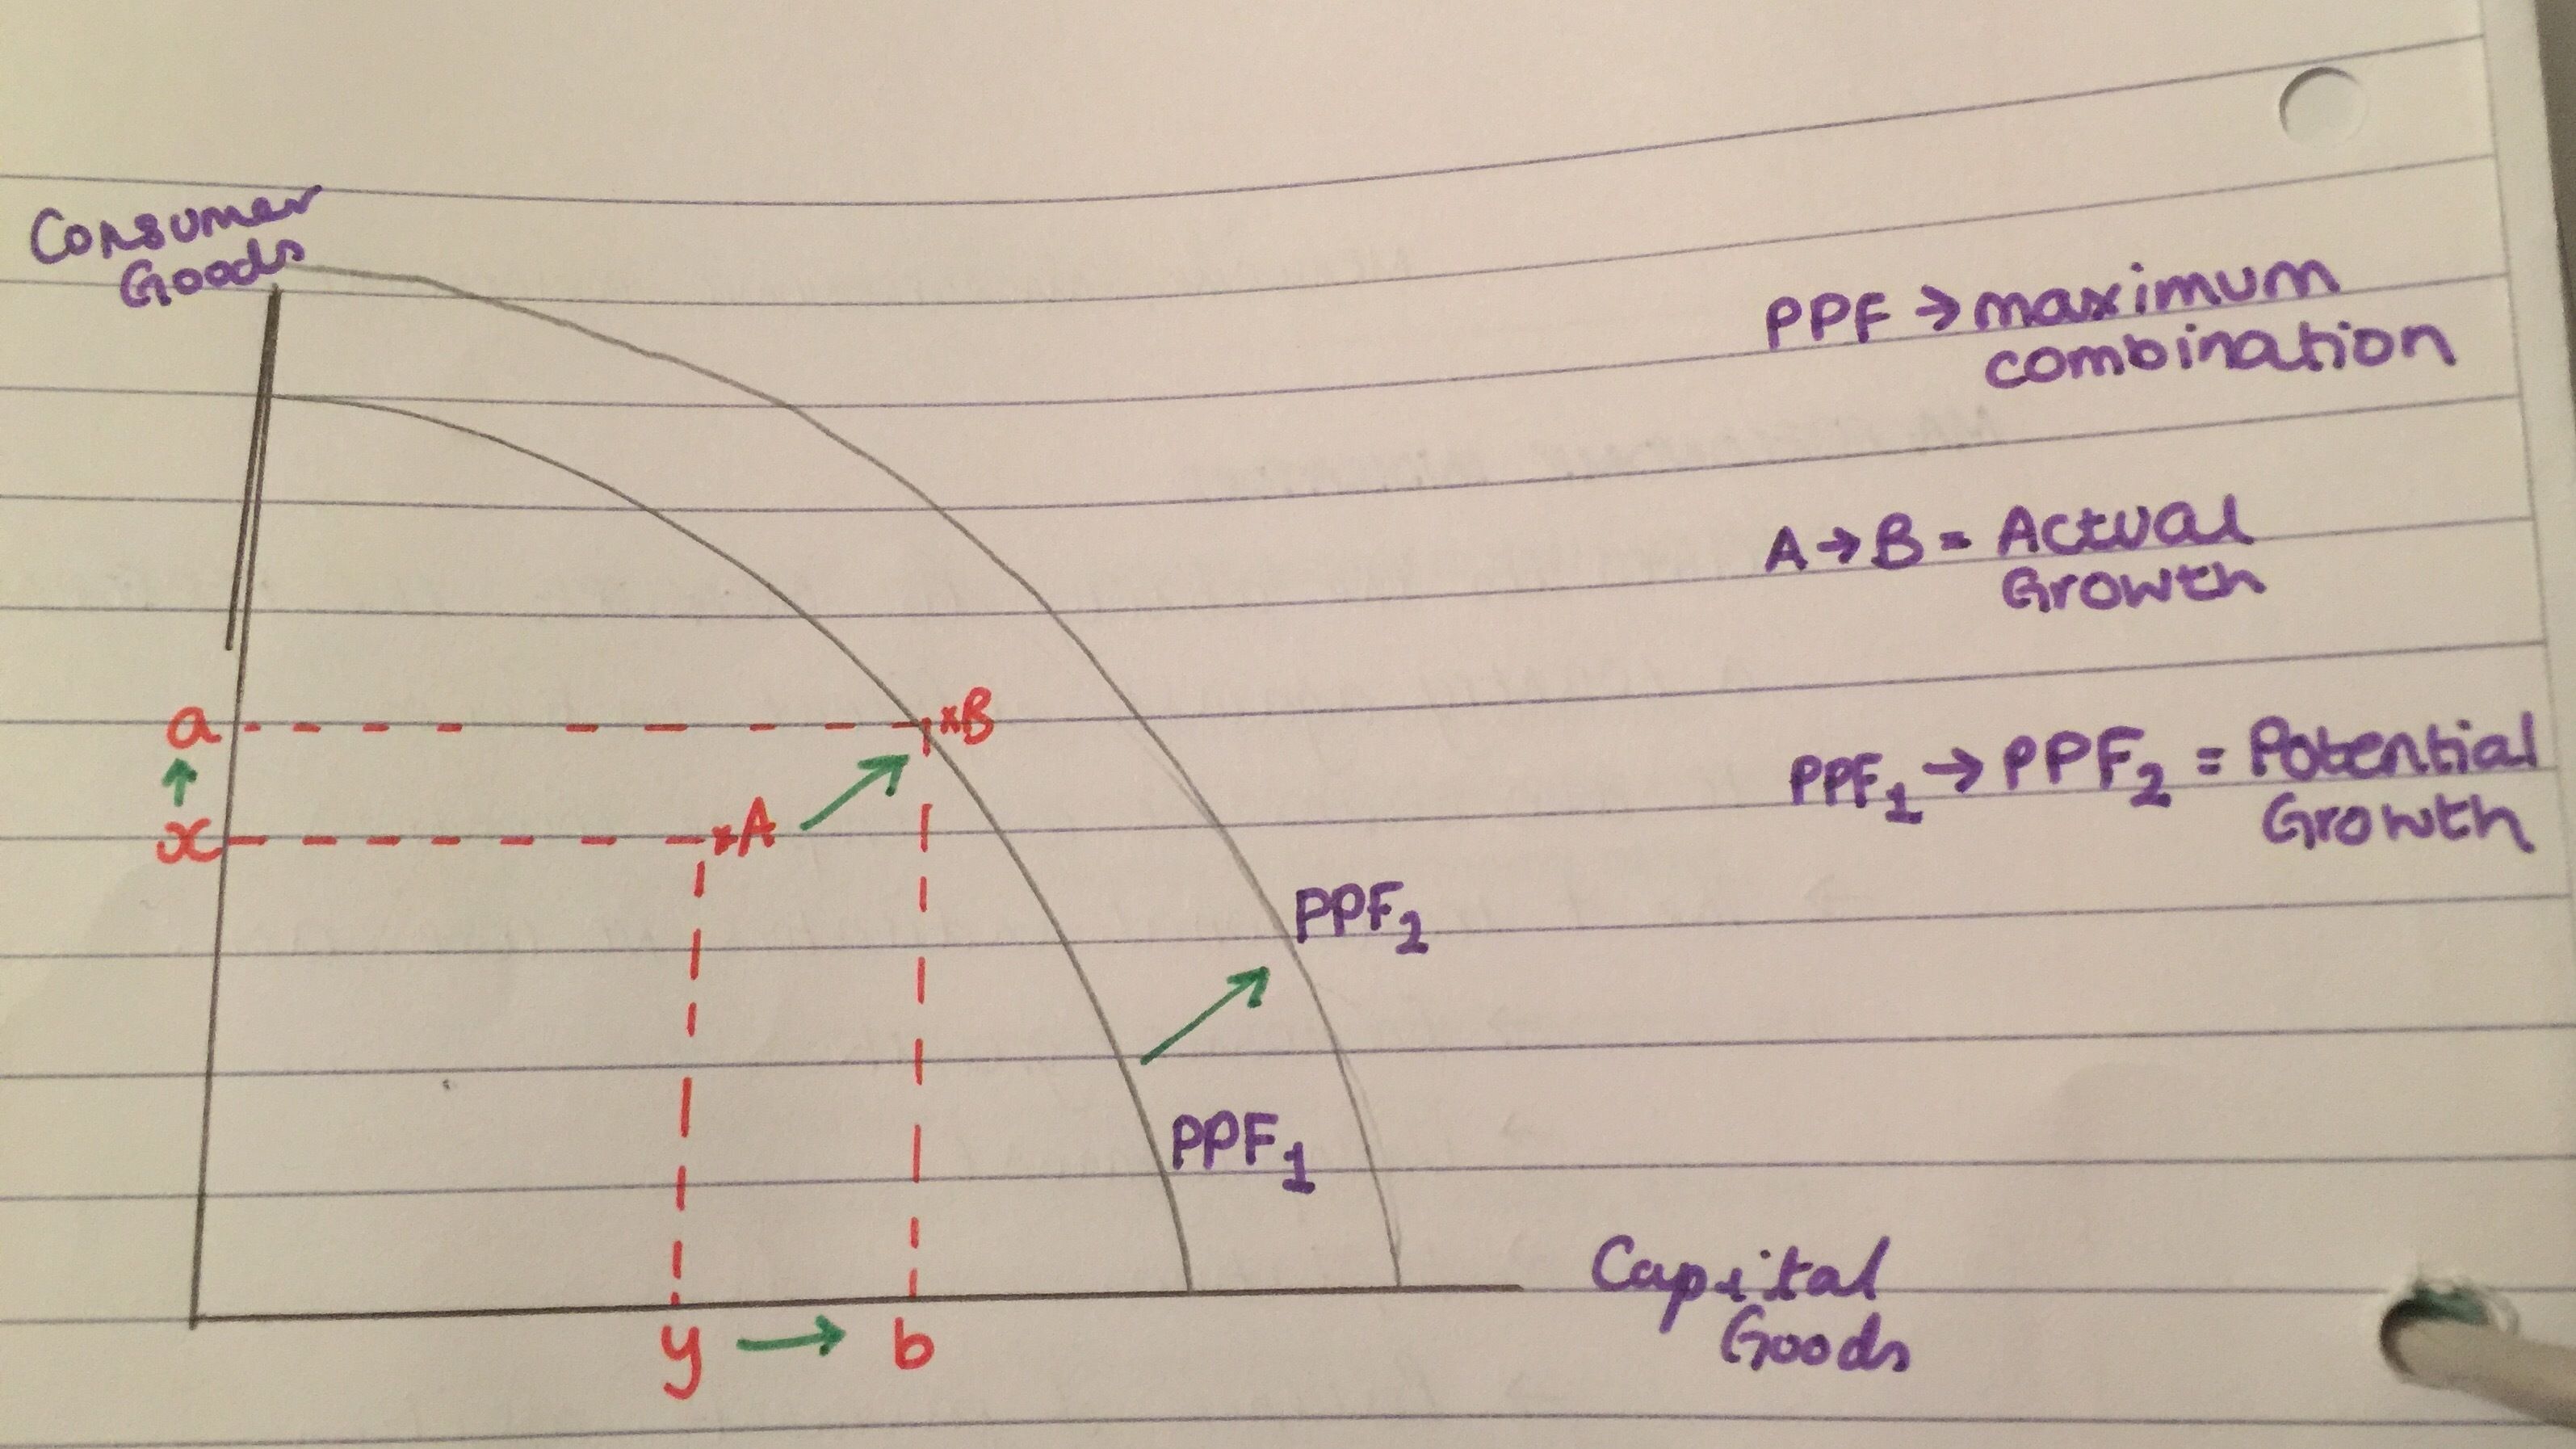 Consumer
Goods
PPF → maximum
combination
A → B = Actual
Growth
a
*B
x
*A
PPF₁ → PPF₂ = Potential
Growth
PPF₂
PPF₁
Capital
Goods
y → b